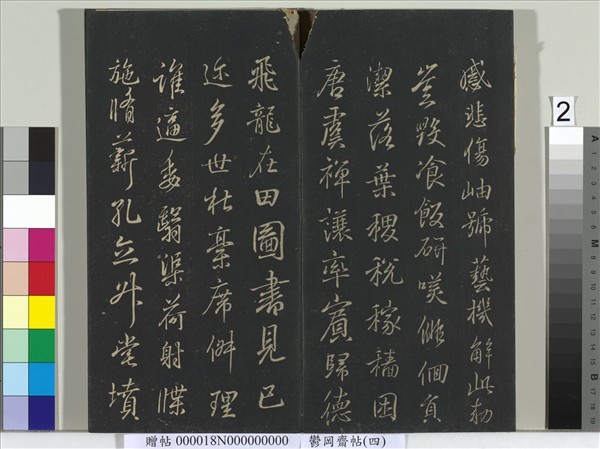 慼悲傷岫號藝機解此勅
豈毀飡飯研咲俯貞
潔落葉稷稅稼穡困
唐虞禪讓率賓歸德
飛龍在田圖書見已
近多世杜稾席俶理
誰逼委翳渠荷射牒
施脩薪孔立升堂墳
2
贈帖 000018N000000000 鬱岡齋帖(四)